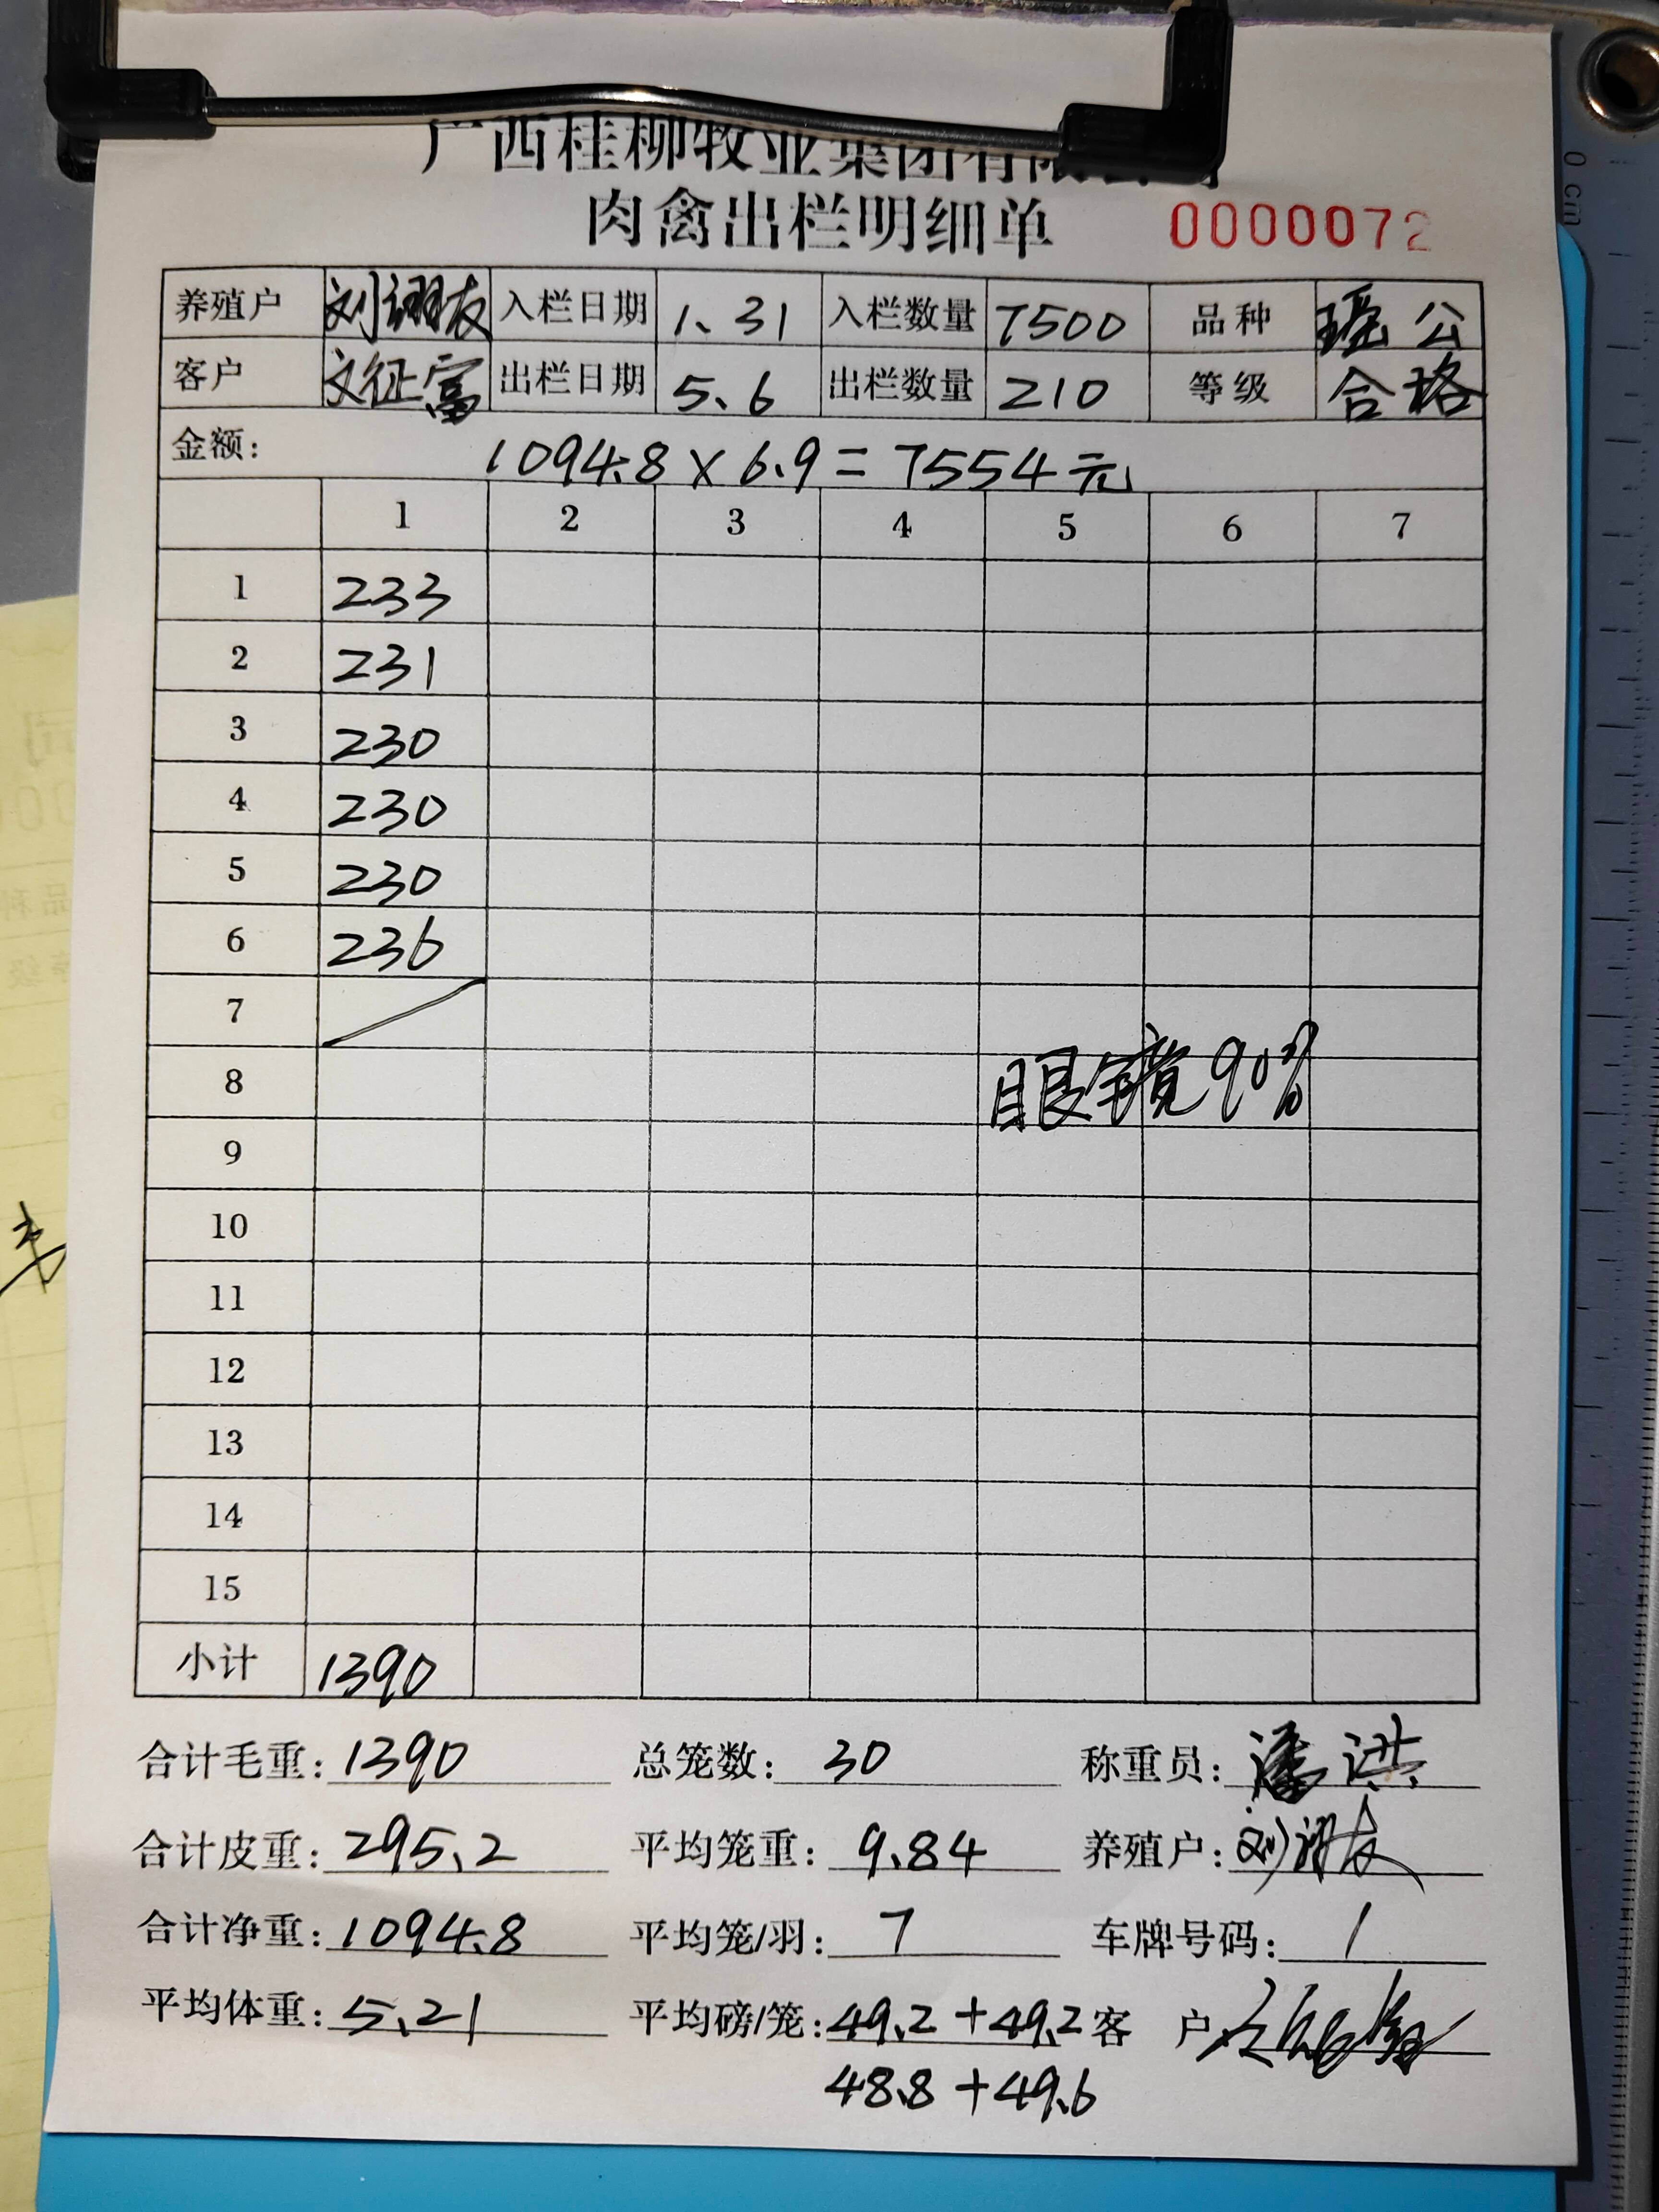 广西桂柳牧业集团有限公司
肉禽出栏明细单 0000072
养殖户 刘翊友 入栏日期 1、31 入栏数量 7500 品种 瑶公
客户 文征富 出栏日期 5、6 出栏数量 210 等级 合格
金额: 1094.8×6.9=7554元
1 2 3 4 5 6 7
1 233
2 231
3 230
4 230
5 230
6 236
7
8 眼镜90%
9
10
11
12
13
14
15
小计 1390
合计毛重: 1390 总笼数: 30 称重员: 潘洪
合计皮重: 295.2 平均笼重: 9.84 养殖户: 刘翊友
合计净重: 1094.8 平均笼/羽: 7 车牌号码: /
平均体重: 5.21 平均磅/笼: 49.2+49.2 客 户:
48.8+49.6
0 cm